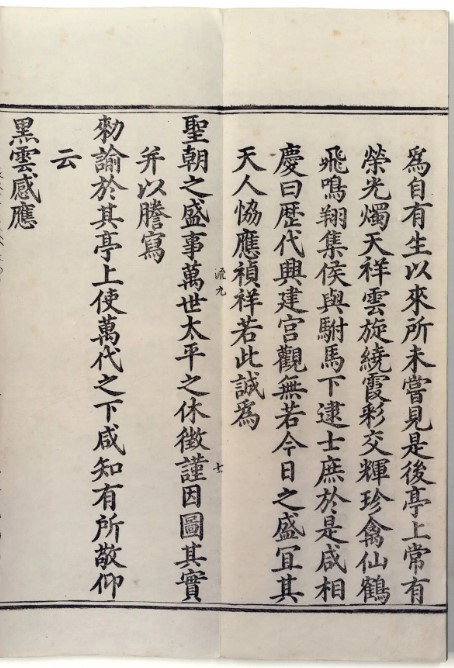 爲自有生以來所未嘗見是後亭上常有
榮光燭天祥雲旋繞霞彩交輝珍禽仙鶴
飛鳴翔集侯與駙馬下逮士庶於是咸相
慶曰歷代興建宮觀無若今日之盛冝其
天人恊應禎祥若此誠爲
流九
七
聖朝之盛事萬世太平之休徵謹因圖其實
并以謄寫
勑諭於其亭上使萬代之下咸知有所敬仰
云
黑雲感應